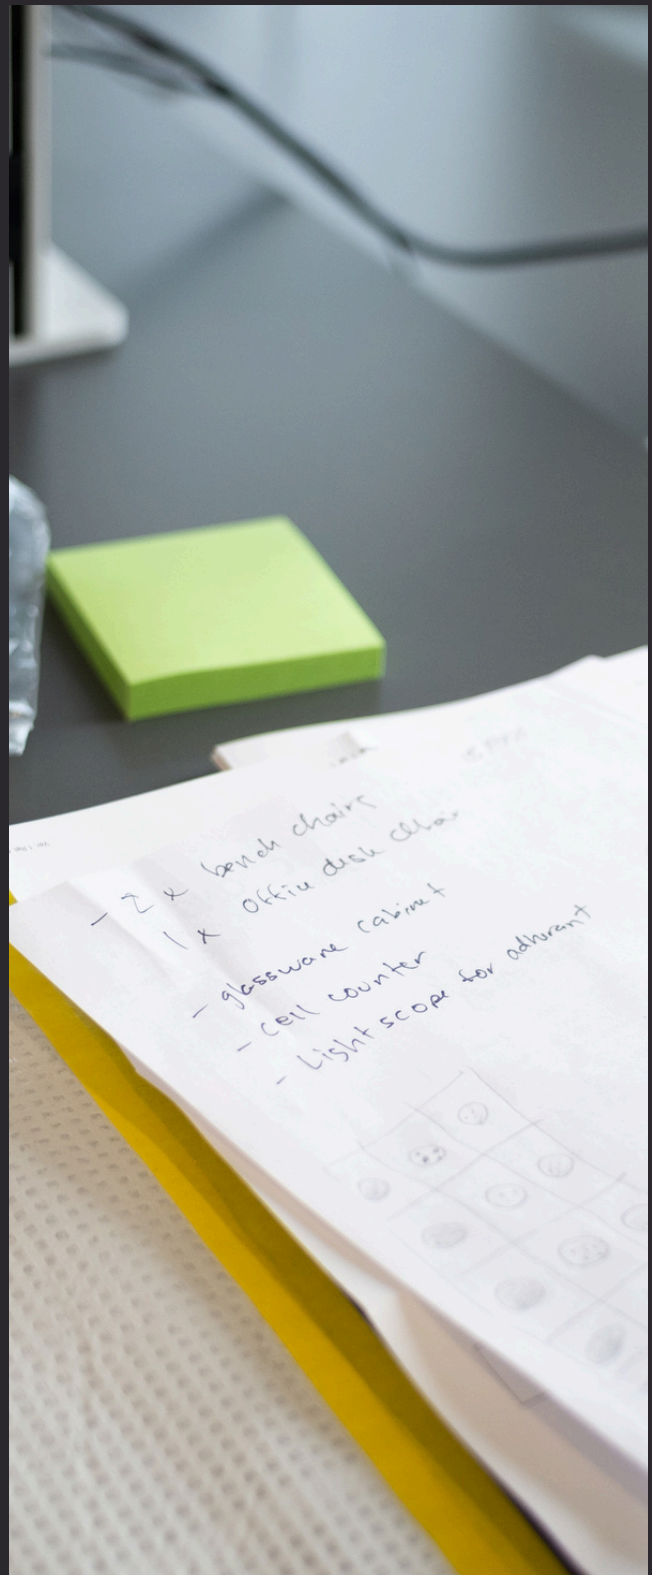 - 2 x bench chairs
1 x office desk chair
- glassware cabinet
- cell counter
- Light scope for adherant